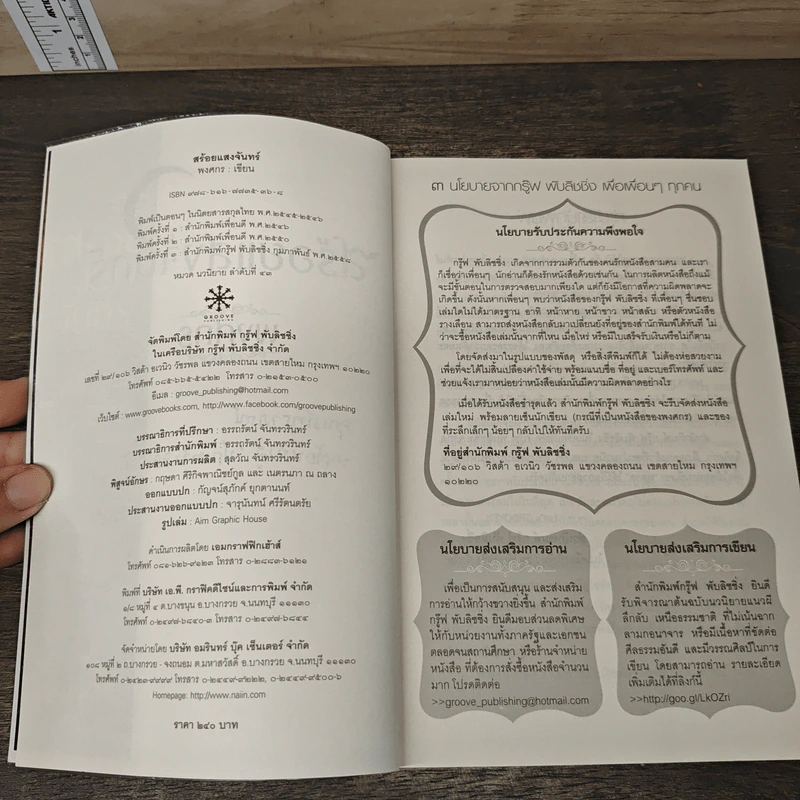 สร้อยแสงจันทร์
พงศกร : เขียน
ISBN ๙๗๘-๖๑๖-๗๗๓๕-๓๖-๘
พิมพ์เป็นตอนๆ ในนิตยสารสกุลไทย พ.ศ.๒๕๔๕-๒๕๔๖
พิมพ์ครั้งที่ ๑ : สำนักพิมพ์เพื่อนดี พ.ศ.๒๕๔๖
พิมพ์ครั้งที่ ๒ : สำนักพิมพ์เพื่อนดี พ.ศ.๒๕๕๐
พิมพ์ครั้งที่ ๓ : สำนักพิมพ์กรู๊ฟ พับลิชชิ่ง กุมภาพันธ์ พ.ศ.๒๕๕๘
หมวด นวนิยาย ลำดับที่ ๔๓
GROOVE
PUBLISHING
จัดพิมพ์โดย สำนักพิมพ์ กรู๊ฟ พับลิชชิ่ง
ในเครือบริษัท กรู๊ฟ พับลิชชิ่ง จำกัด
เลขที่ ๒๙/๑๐๖ วิสต้า อเวนิว วัชรพล แขวงคลองถนน เขตสายไหม กรุงเทพฯ ๑๐๒๒๐
โทรศัพท์ ๐๘๕-๖๖๕-๕๔๒๒ โทรสาร ๐-๒๑๕๓-๐๕๐๐
อีเมล : groove_publishing@hotmail.com
เว็บไซต์ : www.groovebooks.com, http://www.facebook.com/groovepublishing
บรรณาธิการที่ปรึกษา : อรรถรัตน์ จันทรวรินทร์
บรรณาธิการสำนักพิมพ์ : อรรถรัตน์ จันทรวรินทร์
ประสานงานการผลิต : สุลวัณ จันทรวรินทร์
พิสูจน์อักษร : กฤษดา ศิริกิจพาณิชย์กูล และ เนตรนภา ณ ถลาง
ออกแบบปก : กัญจน์สุภัคค์ ยุกตานนท์
ประสานงานออกแบบปก : จารุนันทน์ ศรีรัตนตรัย
รูปเล่ม : Aim Graphic House
ดำเนินการผลิตโดย เอมกราฟฟิกเฮ้าส์
โทรศัพท์ ๐๘๑-๖๒๖-๙๑๒๓ โทรสาร ๐-๒๘๘๓-๖๑๒๑
พิมพ์ที่ บริษัท เอ.พี. กราฟิคดีไซน์และการพิมพ์ จำกัด
๑/๘ หมู่ที่ ๔ ต.บางขนุน อ.บางกรวย จ.นนทบุรี ๑๑๑๓๐
จัดจำหน่ายโดย บริษัท อมรินทร์ บุ๊ค เซ็นเตอร์ จำกัด
๑๐๘ หมู่ที่ ๒ ถ.บางกรวย - จงถนอม ต.มหาสวัสดิ์ อ.บางกรวย จ.นนทบุรี ๑๑๑๓๐
โทรศัพท์ ๐-๒๔๒๓-๙๙๙๙ โทรสาร ๐-๒๔๔๙-๙๒๒๒, ๐-๒๔๔๙-๙๕๐๐-๖
Homepage: http://www.naiin.com
ราคา ๒๔๐ บาท
๓ นโยบายจากกรู๊ฟ พับลิชชิ่ง เพื่อเพื่อนๆ ทุกคน
นโยบายรับประกันความพึงพอใจ
กรู๊ฟ พับลิชชิ่ง เกิดจากการรวมตัวกันของคนรักหนังสือสามคน และเรา
ก็เชื่อว่าเพื่อนๆ นักอ่านก็ต้องรักหนังสือด้วยเช่นกัน ในการผลิตหนังสือถึงแม้
จะมีขั้นตอนในการตรวจสอบมากเพียงใด แต่ก็ยังมีโอกาสที่ความผิดพลาดจะ
เกิดขึ้น ดังนั้นหากเพื่อนๆ พบว่าหนังสือของกรู๊ฟ พับลิชชิ่ง ที่เพื่อนๆ ชื่นชอบ
เล่มใดไม่ได้มาตรฐาน อาทิ หน้าหาย หน้าขาว หน้าสลับ หรือตัวหนังสือ
รางเลือน สามารถส่งหนังสือกลับมาเปลี่ยนยังที่อยู่ของสำนักพิมพ์ได้ทันที ไม่
ว่าจะซื้อหนังสือเล่มนั้นจากที่ไหน เมื่อไหร่ หรือมีใบเสร็จรับเงินหรือไม่ก็ตาม
โดยจัดส่งมาในรูปแบบของพัสดุ หรือสิ่งตีพิมพ์ก็ได้ ไม่ต้องห่อสวยงาม
เพื่อที่จะได้ไม่สิ้นเปลืองค่าใช้จ่าย พร้อมแนบชื่อ ที่อยู่ และเบอร์โทรศัพท์ และ
ช่วยแจ้งเรามาหน่อยว่าหนังสือเล่มนั้นมีความผิดพลาดอย่างไร
เมื่อได้รับหนังสือชำรุดแล้ว สำนักพิมพ์กรู๊ฟ พับลิชชิ่ง จะรีบจัดส่งหนังสือ
เล่มใหม่ พร้อมลายเซ็นนักเขียน (กรณีที่เป็นหนังสือของพงศกร) และของ
ที่ระลึกเล็กๆ น้อยๆ กลับไปให้ทันทีครับ
ที่อยู่สำนักพิมพ์ กรู๊ฟ พับลิชชิ่ง
๒๙/๑๐๖ วิสต้า อเวนิว วัชรพล แขวงคลองถนน เขตสายไหม กรุงเทพฯ
๑๐๒๒๐
นโยบายส่งเสริมการอ่าน
เพื่อเป็นการสนับสนุน และส่งเสริม
การอ่านให้กว้างขวางยิ่งขึ้น สำนักพิมพ์
กรู๊ฟ พับลิชชิ่ง ยินดีมอบส่วนลดพิเศษ
ให้กับหน่วยงานทั้งภาครัฐและเอกชน
ตลอดจนสถานศึกษา หรือร้านจำหน่าย
หนังสือ ที่ต้องการสั่งซื้อหนังสือจำนวน
มาก โปรดติดต่อ
>>groove_publishing@hotmail.com
นโยบายส่งเสริมการเขียน
สำนักพิมพ์กรู๊ฟ พับลิชชิ่ง ยินดี
รับพิจารณาต้นฉบับนวนิยายแนวผี
ลึกลับ เหนือธรรมชาติ ที่ไม่เน้นฉาก
ลามกอนาจาร หรือมีเนื้อหาที่ขัดต่อ
ศีลธรรมอันดี และมีวรรณศิลป์ในการ
เขียน โดยสามารถอ่าน รายละเอียด
เพิ่มเติมได้ที่ลิงก์นี้
>>http://goo.gl/LkOZri